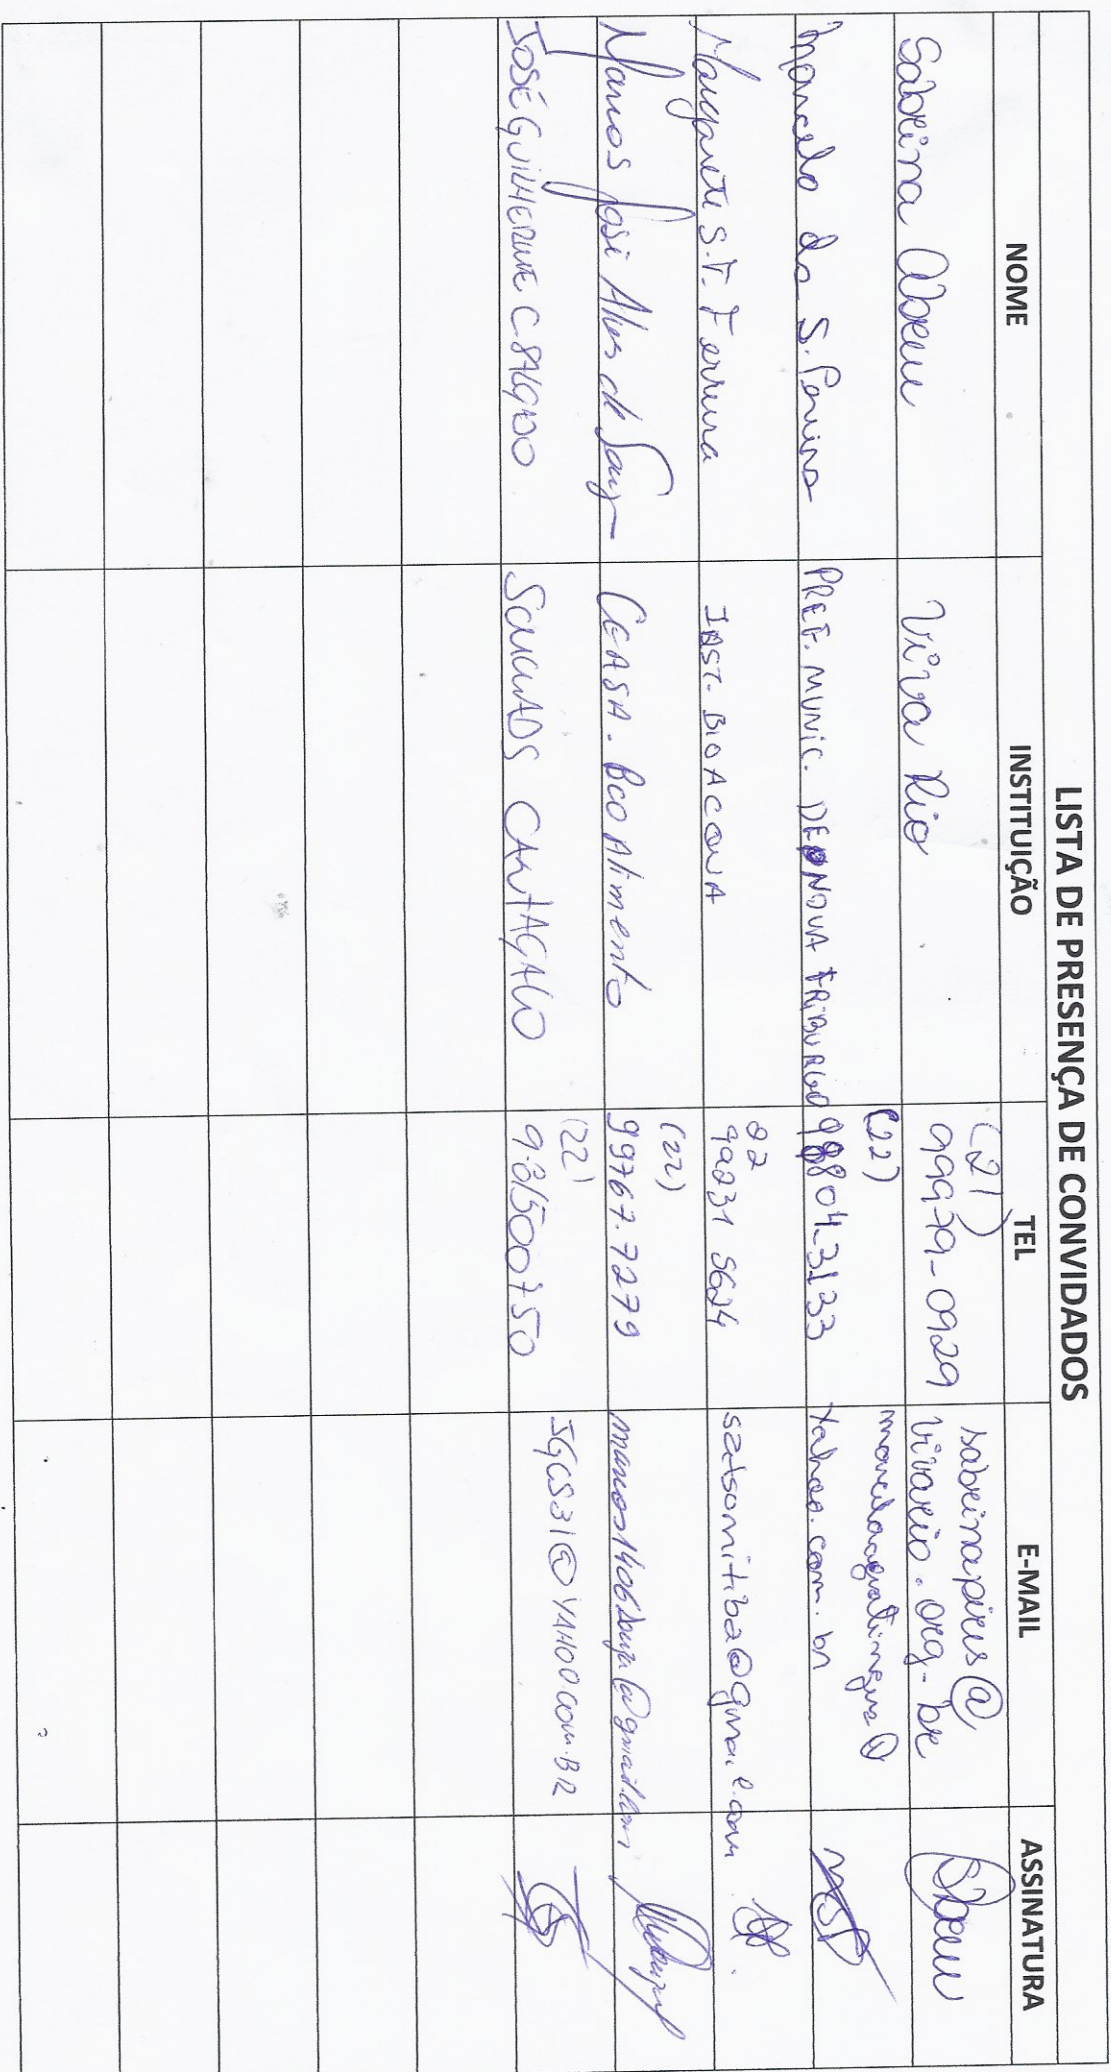 LISTA DE PRESENÇA DE CONVIDADOS
NOME INSTITUIÇÃO TEL E-MAIL ASSINATURA
Sabrina Abreu Viva Rio (21) 99979-0929 sabrinapires@
vivario.org.br
Marcelo da S. Pereira PREF. MUNIC. DE NOVA FRIBURGO (22) 98804-3133
yahoo.com.br
Margarete S.T. Ferreira INST. BIOACQUA 22 99231 5624 satsomitiba@gmail.com
Marcos José Alves de Souza CEASA. Bco Alimento (22) 99767.7279
JOSÉ GUILHERME C. SALGADO CANTAGALO (22) 9.81500750 JGCS31@YAHOO.COM.BR